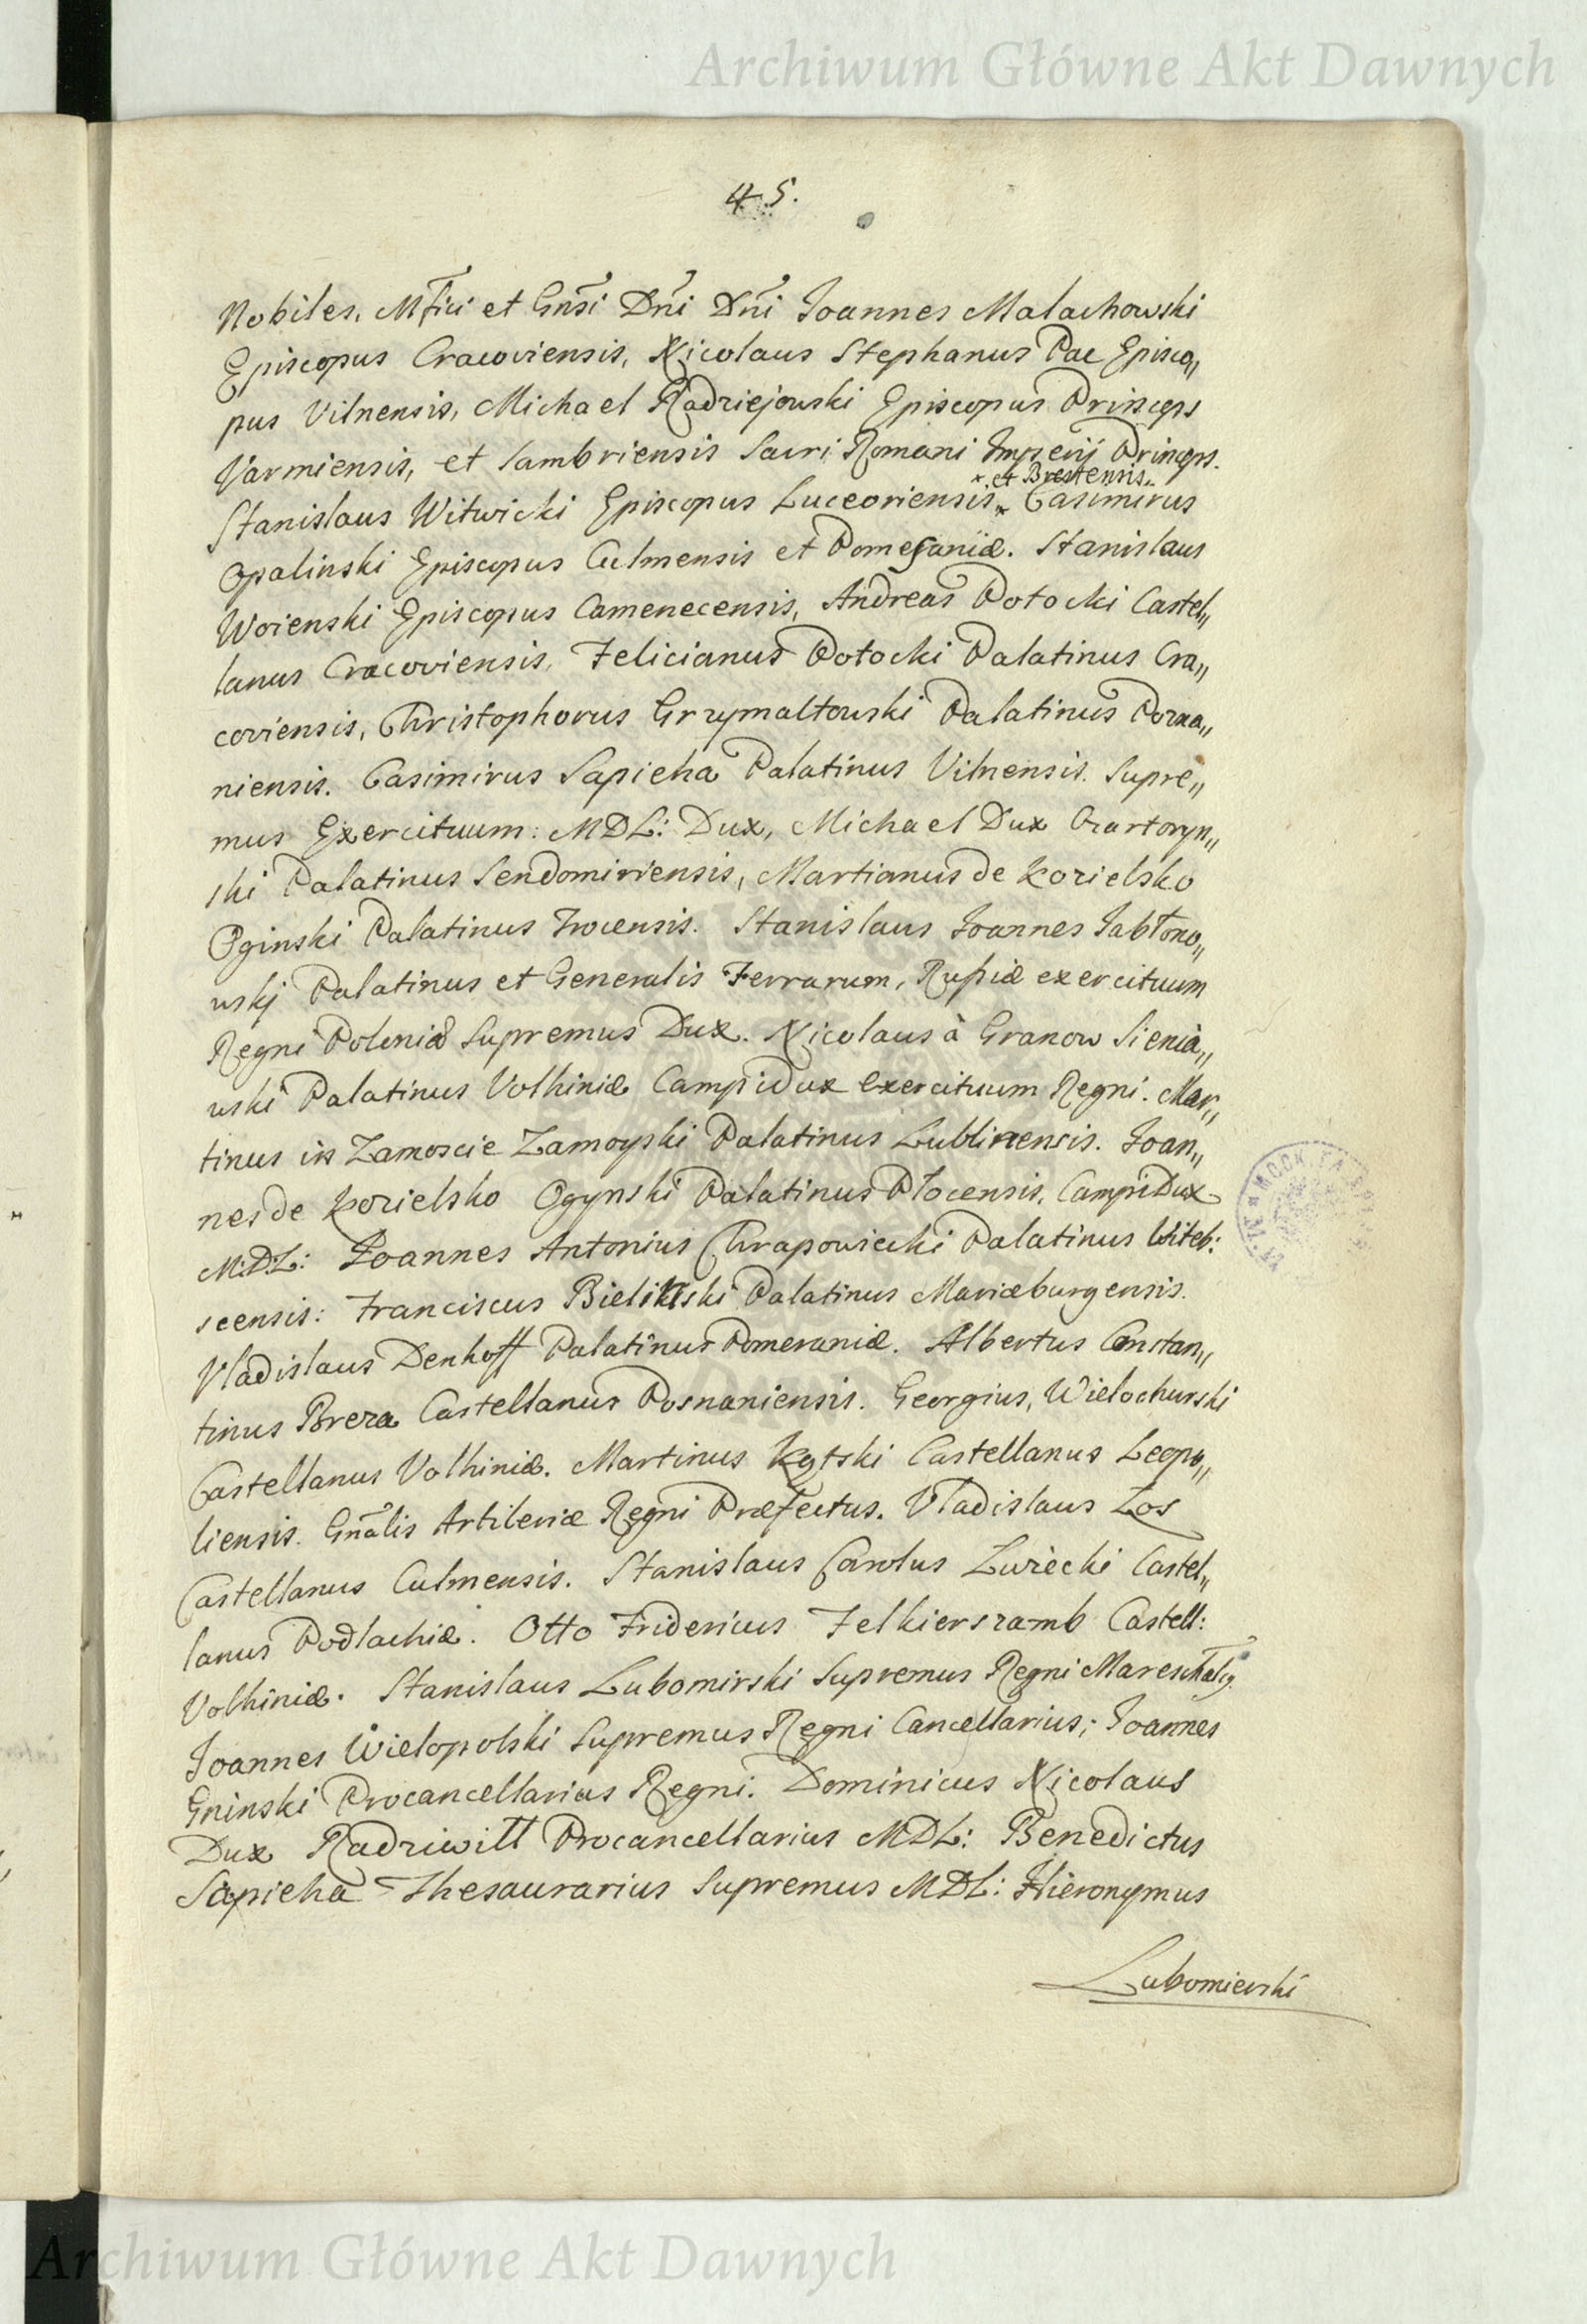 Archiwum Główne Akt Dawnych
45.
Nobiles, Mfici et Gnsi Dni Dni Joannes Malachowski
Episcopus Cracoviensis, Nicolaus Stephanus Pac Episco„
pus Vilnensis, Michael Radziejowski Episcopus Princeps
Varmiensis, et Sambriensis Sacri Romani Imperij Princeps.
* et Brestensis.
Stanislaus Witwicki Episcopus Luceoriensis * Casimirus
Opalinski Episcopus Culmensis et Pomesaniæ. Stanislaus
Woienski Episcopus Camenecensis, Andreas Potocki Castel„
lanus Cracoviensis, Felicianus Potocki Palatinus Cra„
coviensis, Christophorus Grzymaltowski Palatinus Pozna„
niensis. Casimirus Sapieha Palatinus Vilnensis. Supre„
mus Exercituum: MDL: Dux, Michael Dux Czartoryn„
ski Palatinus Sendomiriensis, Martianus de Kozielsko
Oginski Palatinus Trocensis. Stanislaus Joannes Jabłono„
wskj Palatinus et Generalis Terrarum, Rußiæ exercituum
Regni Poloniæ Supremus Dux. Nicolaus à Granow Sienia„
wski Palatinus Volhiniæ Campi Dux exercituum Regni. Mar„
tinus in Zamoscie Zamoyski Palatinus Lublinensis. Joan„
nes de Kozielsko Ogynski Palatinus Płocensis, Campi Dux
MDL: Joannes Antonius Chrapowiecki Palatinus Witeb:
scensis: Franciscus Bielinski Palatinus Mariæburgensis.
Vladislaus Denhoff Palatinus Pomeraniæ. Albertus Constan„
tinus Breza Castellanus Posnaniensis. Georgius, Wielochurski
Castellanus Volhiniæ. Martinus Kątski Castellanus Leopo„
liensis. Gnãlis Artileriæ Regni Præfectus. Vladislaus Łos
Castellanus Culmensis. Stanislaus Carolus Łuziecki Castel„
lanus Podlachiæ. Otto Fridericus Felkierszamb Castell:
Volhiniæ. Stanislaus Lubomirski Supremus Regni Mareschalg
Joannes Wielopolski Supremus Regni Cancellarius; Joannes
Gninski Procancellarius Regni. Dominicus Nicolaus
Dux Radziwiłł Procancellarius MDL: Benedictus
Sapieha Thesaurarius Supremus MDL: Hieronymus
Lubomierski
Archiwum Główne Akt Dawnych